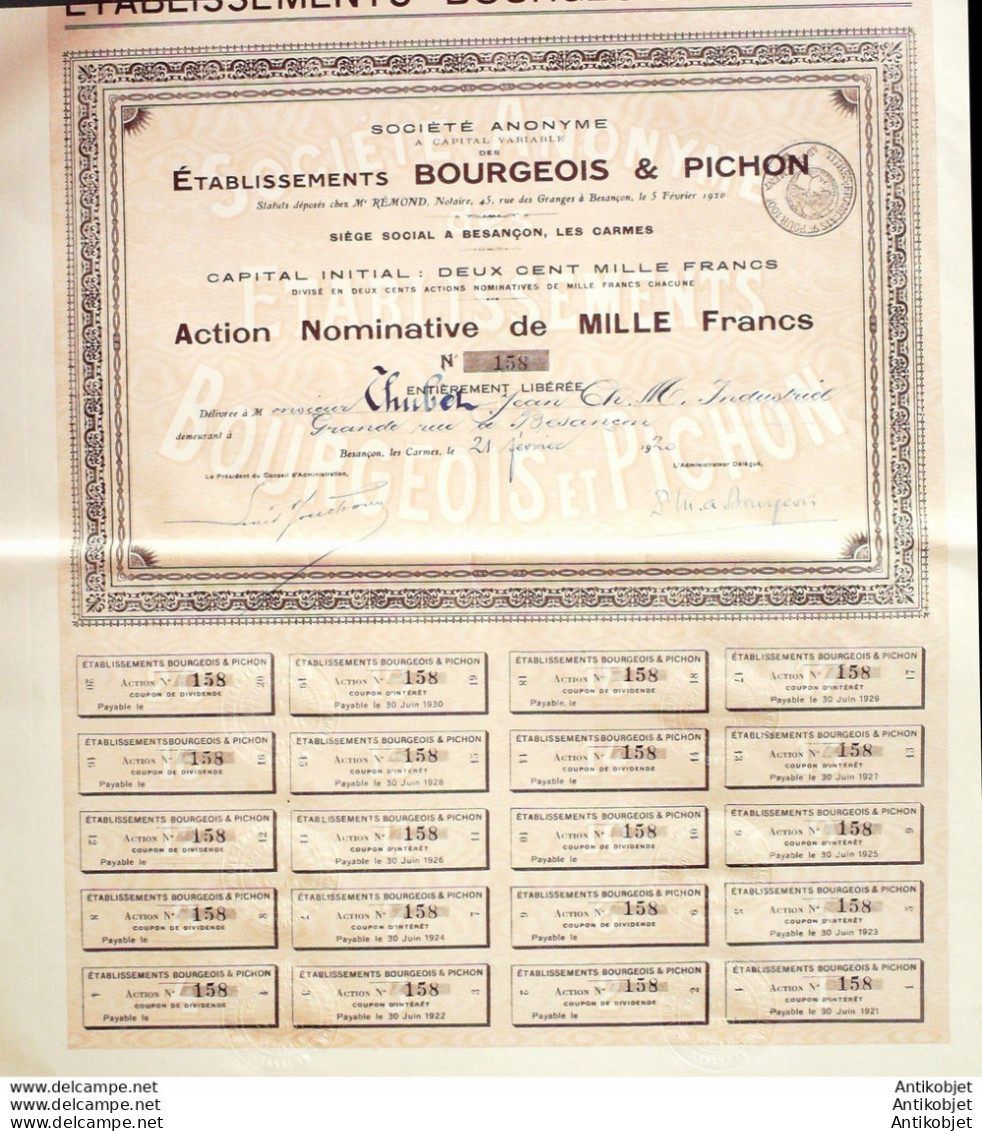 ÉTABLISSEMENTS BOURGEOIS
SOCIÉTÉ ANONYME
A CAPITAL VARIABLE
DES
ÉTABLISSEMENTS BOURGEOIS & PICHON
Statuts déposés chez Mᵉ RÉMOND, Notaire, 45, rue des Granges à Besançon, le 5 Février 1920
SIÈGE SOCIAL A BESANÇON, LES CARMES
CAPITAL INITIAL : DEUX CENT MILLE FRANCS
DIVISÉ EN DEUX CENTS ACTIONS NOMINATIVES DE MILLE FRANCS CHACUNE
Action Nominative de MILLE Francs
N° 158
ENTIÈREMENT LIBÉRÉE
Délivrée à Monsieur Jean Ch. M. Industriel
demeurant à Grande rue Besançon
Besançon, les Carmes, le 21 février 1920
Le Président du Conseil d'Administration,
L'Administrateur Délégué,
Bourgeois
SOCIÉTÉ ANONYME
ÉTABLISSEMENTS
BOURGEOIS ET PICHON
ÉTABLISSEMENTS BOURGEOIS & PICHON
20 ACTION N° 158 20
COUPON DE DIVIDENDE
Payable le
ÉTABLISSEMENTS BOURGEOIS & PICHON
19 ACTION N° 158 19
COUPON D'INTÉRÊT
Payable le 30 Juin 1930
ÉTABLISSEMENTS BOURGEOIS & PICHON
18 ACTION N° 158 18
COUPON DE DIVIDENDE
Payable le
ÉTABLISSEMENTS BOURGEOIS & PICHON
17 ACTION N° 158 17
COUPON D'INTÉRÊT
Payable le 30 Juin 1929
ÉTABLISSEMENTS BOURGEOIS & PICHON
16 ACTION N° 158 16
COUPON DE DIVIDENDE
Payable le
ÉTABLISSEMENTS BOURGEOIS & PICHON
15 ACTION N° 158 15
COUPON D'INTÉRÊT
Payable le 30 Juin 1928
ÉTABLISSEMENTS BOURGEOIS & PICHON
14 ACTION N° 158 14
COUPON DE DIVIDENDE
Payable le
ÉTABLISSEMENTS BOURGEOIS & PICHON
13 ACTION N° 158 13
COUPON D'INTÉRÊT
Payable le 30 Juin 1927
ÉTABLISSEMENTS BOURGEOIS & PICHON
12 ACTION N° 158 12
COUPON DE DIVIDENDE
Payable le
ÉTABLISSEMENTS BOURGEOIS & PICHON
11 ACTION N° 158 11
COUPON D'INTÉRÊT
Payable le 30 Juin 1926
ÉTABLISSEMENTS BOURGEOIS & PICHON
10 ACTION N° 158 10
COUPON DE DIVIDENDE
Payable le
ÉTABLISSEMENTS BOURGEOIS & PICHON
9 ACTION N° 158 9
COUPON D'INTÉRÊT
Payable le 30 Juin 1925
ÉTABLISSEMENTS BOURGEOIS & PICHON
8 ACTION N° 158 8
COUPON DE DIVIDENDE
Payable le
ÉTABLISSEMENTS BOURGEOIS & PICHON
7 ACTION N° 158 7
COUPON D'INTÉRÊT
Payable le 30 Juin 1924
ÉTABLISSEMENTS BOURGEOIS & PICHON
6 ACTION N° 158 6
COUPON DE DIVIDENDE
Payable le
ÉTABLISSEMENTS BOURGEOIS & PICHON
5 ACTION N° 158 5
COUPON D'INTÉRÊT
Payable le 30 Juin 1923
ÉTABLISSEMENTS BOURGEOIS & PICHON
4 ACTION N° 158 4
COUPON DE DIVIDENDE
Payable le
ÉTABLISSEMENTS BOURGEOIS & PICHON
3 ACTION N° 158 3
COUPON D'INTÉRÊT
Payable le 30 Juin 1922
ÉTABLISSEMENTS BOURGEOIS & PICHON
2 ACTION N° 158 2
COUPON DE DIVIDENDE
Payable le
ÉTABLISSEMENTS BOURGEOIS & PICHON
1 ACTION N° 158 1
COUPON D'INTÉRÊT
Payable le 30 Juin 1921
https://www.delcampe.net
https://www.delcampe.net
https://www.delcampe.net
Antikobjet
Antikobjet
Antikobjet